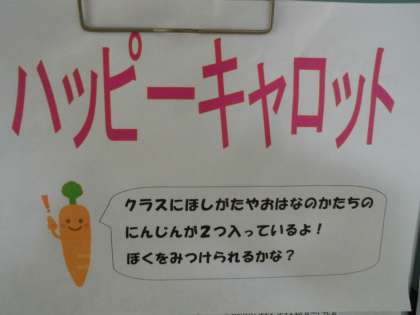 ハッピーキャロット
クラスにほしがたやおはなのかたちの
にんじんが2つ入っているよ！
ぼくをみつけられるかな？